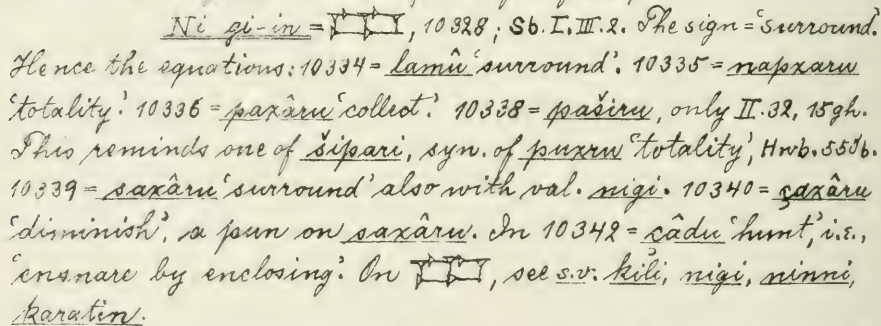 Ni gi-in = , 10328; Sb. I. III. 2. The sign = 'surround.'
Hence the equations: 10334 = lamû 'surround'. 10335 = napxaru
'totality'. 10336 = paxâru 'collect'. 10338 = paširu, only II. 32, 15gh.
This reminds one of šipari, syn. of puxru 'totality', Hwb. 553b.
10339 = saxâru 'surround' also with val. nigi. 10340 = çaxâru
'diminish', a pun on saxâru. In 10342 = çâdu 'hunt', i.e.,
'ensnare by enclosing'. On , see s.v. kili, nigi, ninni,
karatin.